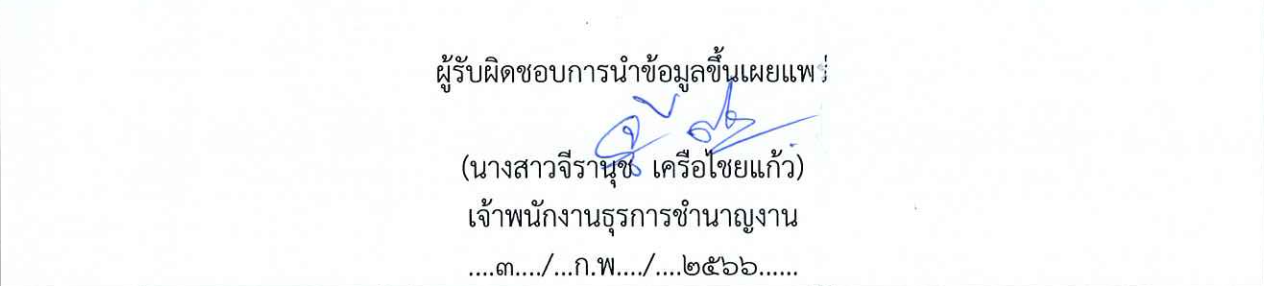 ผู้รับผิดชอบการนำข้อมูลขึ้นเผยแพร่
(นางสาวจีรานุช เครือไชยแก้ว)
เจ้าพนักงานธุรการชำนาญงาน
....๓..../...ก.พ..../....๒๕๖๖......